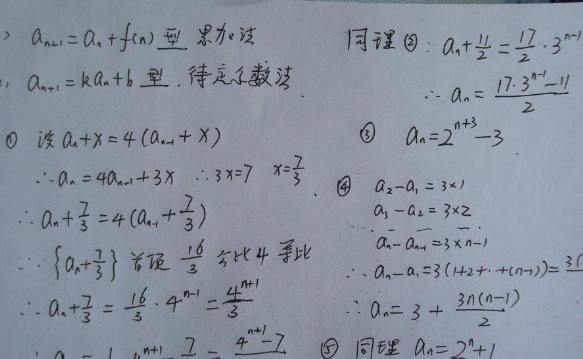 a_{n+1} = a_n + f(n) 型 累加法
a_{n+1} = ka_n + b 型, 待定系数法
① 设 a_n + x = 4(a_{n-1} + x)
∴ a_n = 4a_{n-1} + 3x ∴ 3x = 7 x = 7/3
∴ a_n + 7/3 = 4(a_{n-1} + 7/3)
∴ {a_n + 7/3} 首项 16/3 公比 4 等比
∴ a_n + 7/3 = 16/3 · 4^{n-1} = 4^{n+1}/3
同理②: a_n + 11/2 = 17/2 · 3^{n-1}
∴ a_n = (17·3^{n-1} - 11)/2
③ a_n = 2^{n+3} - 3
④ a_2 - a_1 = 3×1
a_3 - a_2 = 3×2
a_n - a_{n-1} = 3×n-1
∴ a_n - a_1 = 3(1+2+···+(n-1)) =
∴ a_n = 3 + 3n(n-1)/2
⑤ 同理 a_n = 2^n + 1